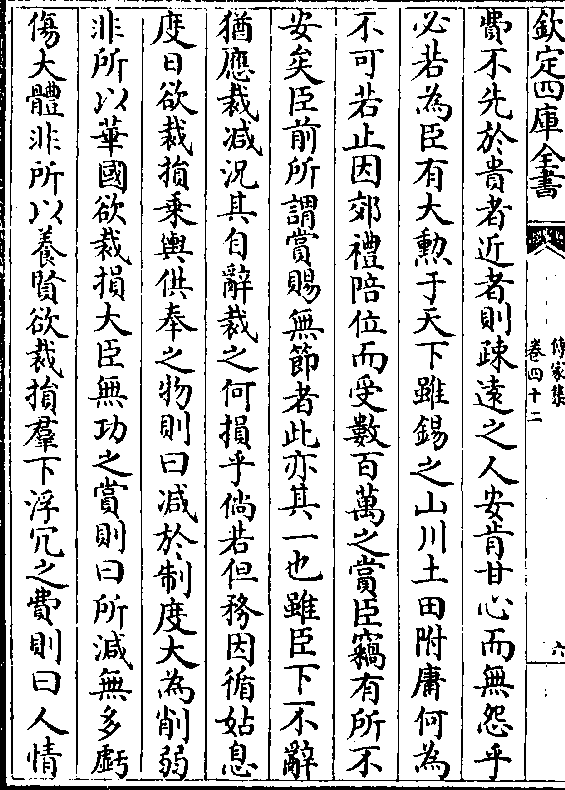 欽定四庫全書
傳家集
卷四十二
六
費不先於貴者近者則疎遠之人安肯甘心而無怨乎
必若為臣有大勲于天下雖錫之山川土田附庸何為
不可若止因郊禮陪位而受數百萬之賞臣竊有所不
安矣臣前所謂賞賜無節者此亦其一也雖臣下不辭
猶應裁减況其自辭裁之何損乎倘若但務因循姑息
度日欲裁損乗輿供奉之物則曰减於制度大為削弱
非所以華國欲裁損大臣無功之賞則曰所減無多虧
傷大體非所以養賢欲裁損羣下浮冗之費則曰人情